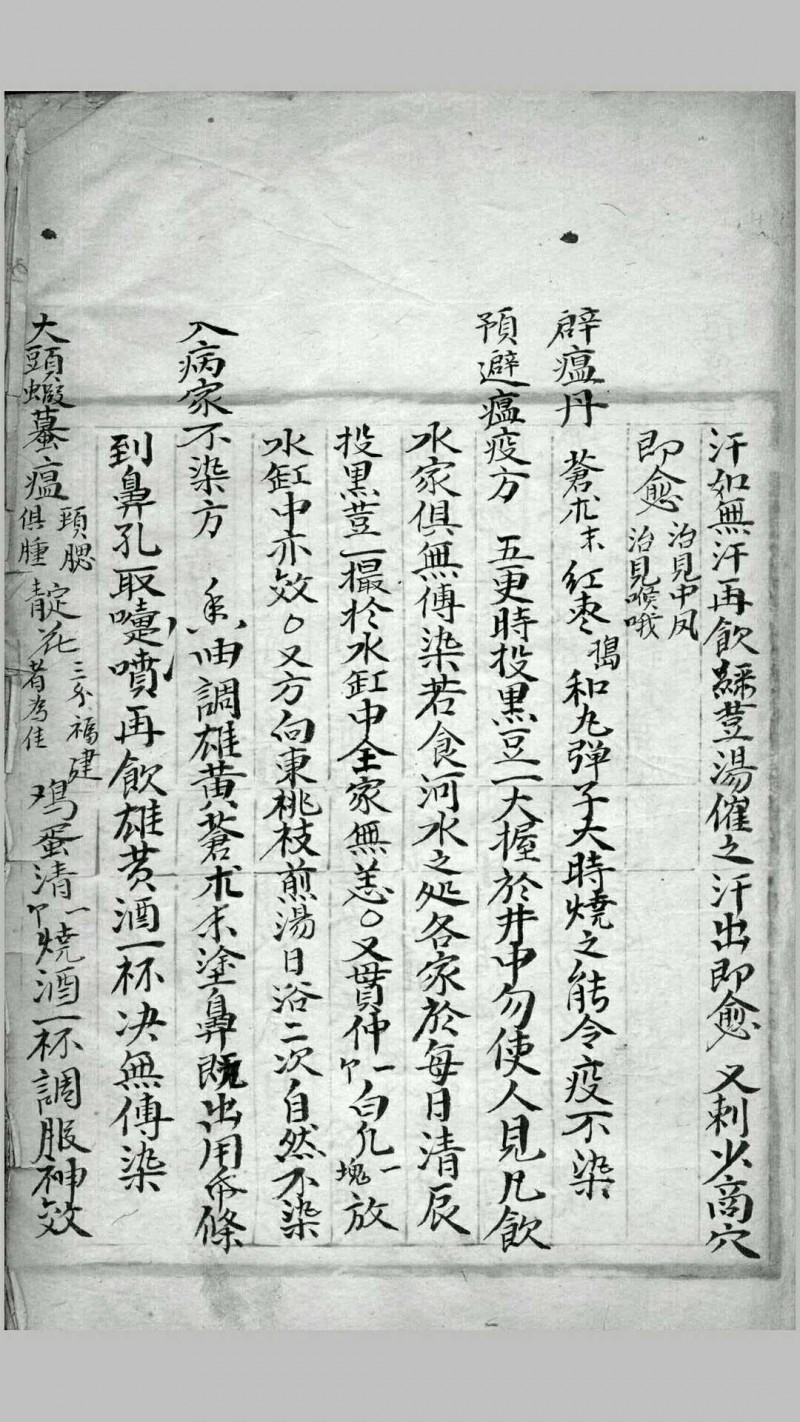 汗如無汗再飲綠荳湯催之汗出即愈 又刺少商穴
即愈 治見中风 治見喉哦
辟瘟丹 蒼朮末 紅枣 搗 和丸弹子大時燒之能令疫不染
預避瘟疫方 五更時投黑豆一大握於井中勿使人見凡飲
水家俱無傅染若食河水之処各家於每日清辰
投黑荳一撮於水缸中全家無恙〇又貫仲一卩白凡一塊放
水缸中亦效〇又方向東桃枝煎湯日浴二次自然不染
入病家不染方 香油調雄黄蒼朮末塗鼻既出用帋條
到鼻孔取嚏噴再飲雄黄酒一杯决無傅染
大頭蝦蟇瘟 頸腮俱腫 靛花 三分福建者為佳 鸡蛋清一卩燒酒一杯調服神效